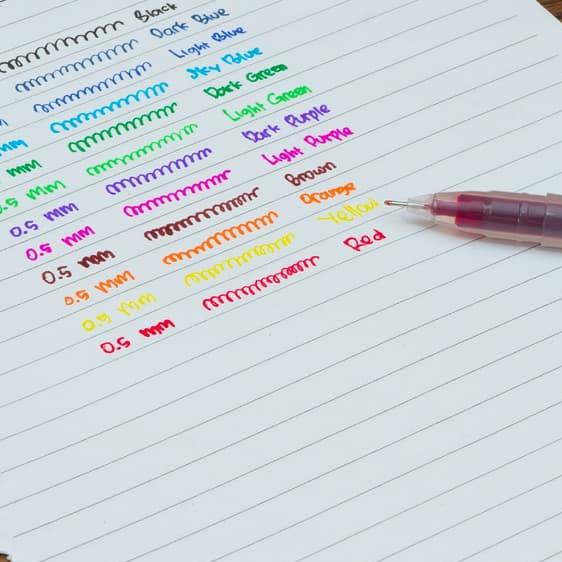 Black
Dark Blue
m Light Blue
mm Sky Blue
mm Dark Green
0.5 mm Light Green
0.5 mm Dark Purple
0.5 mm Light Purple
0.5 mm Brown
0.5 mm Orange
0.5 mm Yellow
0.5 mm Red